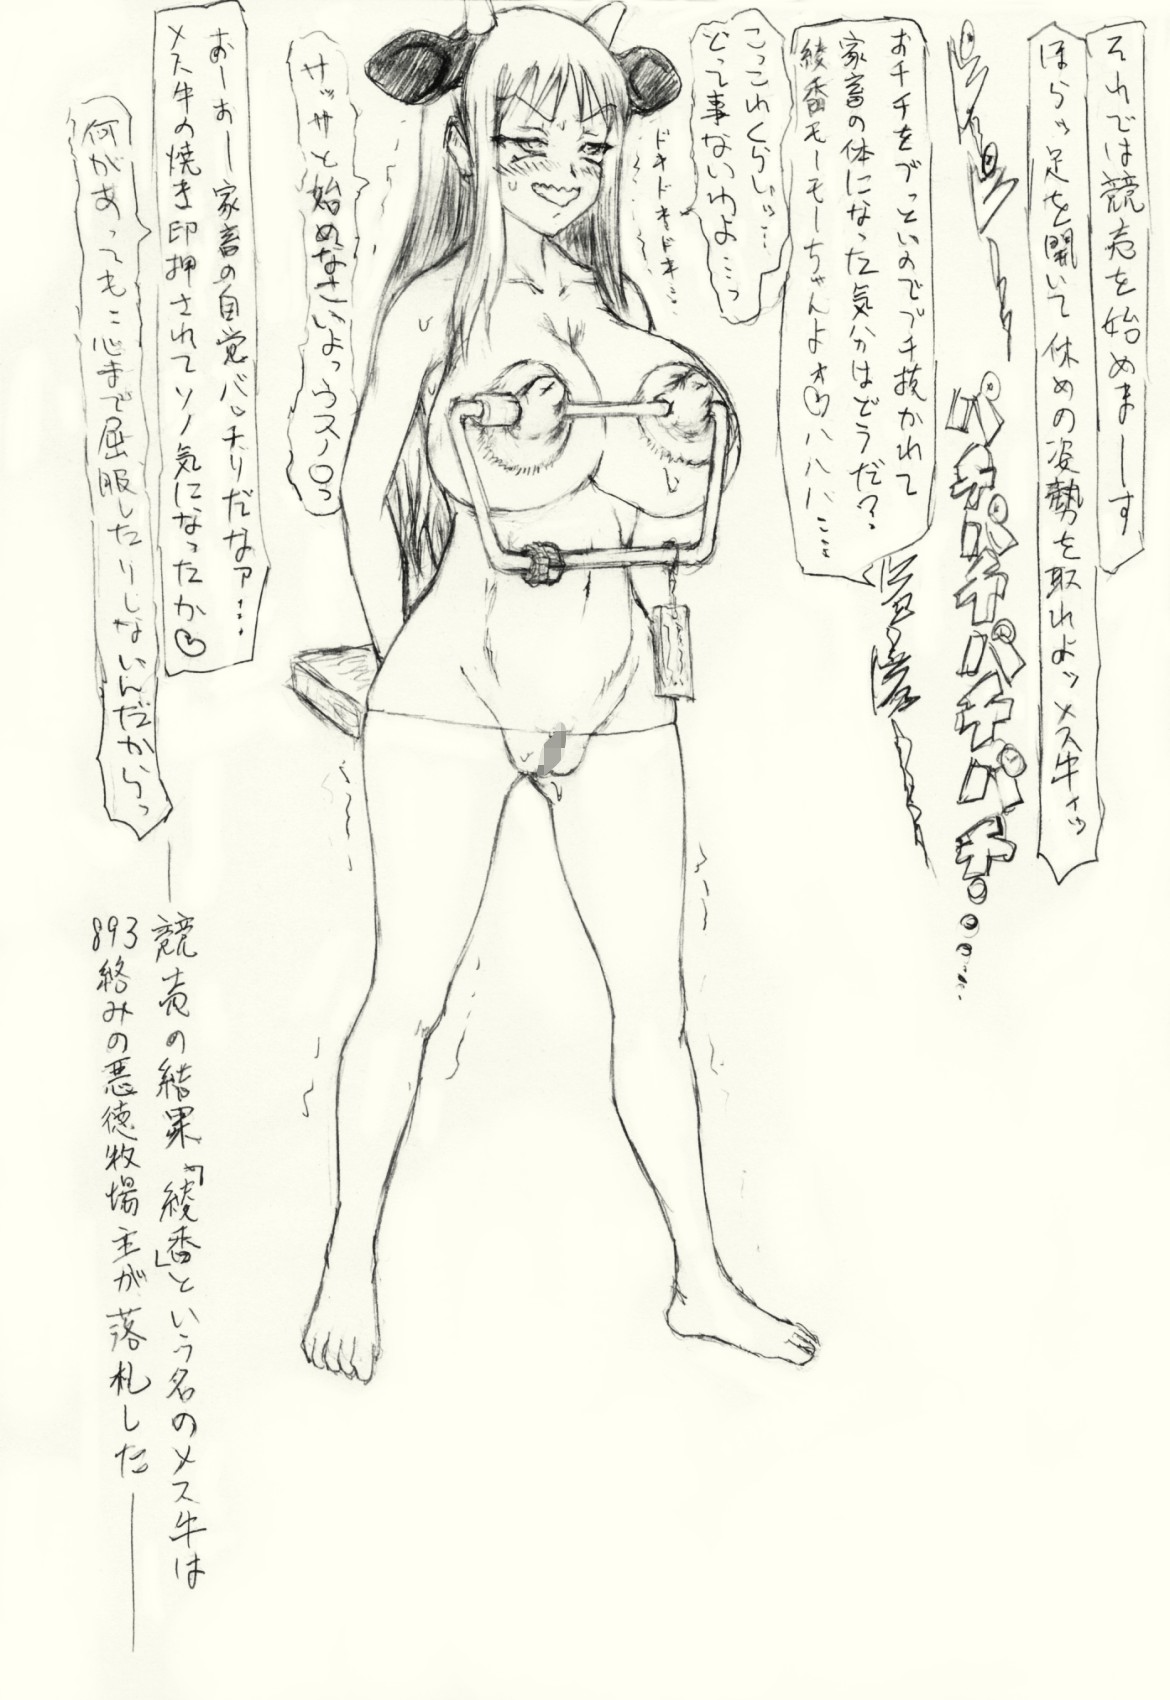 それでは競売を始めまーーす
ほらっ足を開いて休めの姿勢を取れよッメス牛ィッ
パチパチパチパチパチ
おチチをブっといのでブチ抜かれて
家畜の体になった気分はどうだ？
綾香モーモーちゃんよォ♡ハハハ…
こっこれくらいッ…
どって事ないわよ…っ
ドキドキドキ…
サッサと始めなさいよっウスノロっ
おーおー家畜の自覚バッチリだなァ…
メス牛の焼き印押されてソノ気になったか♡
何があっても心まで屈服したりしないんだからっ
――競売の結果「綾香」という名のメス牛は
893絡みの悪徳牧場主が落札した――